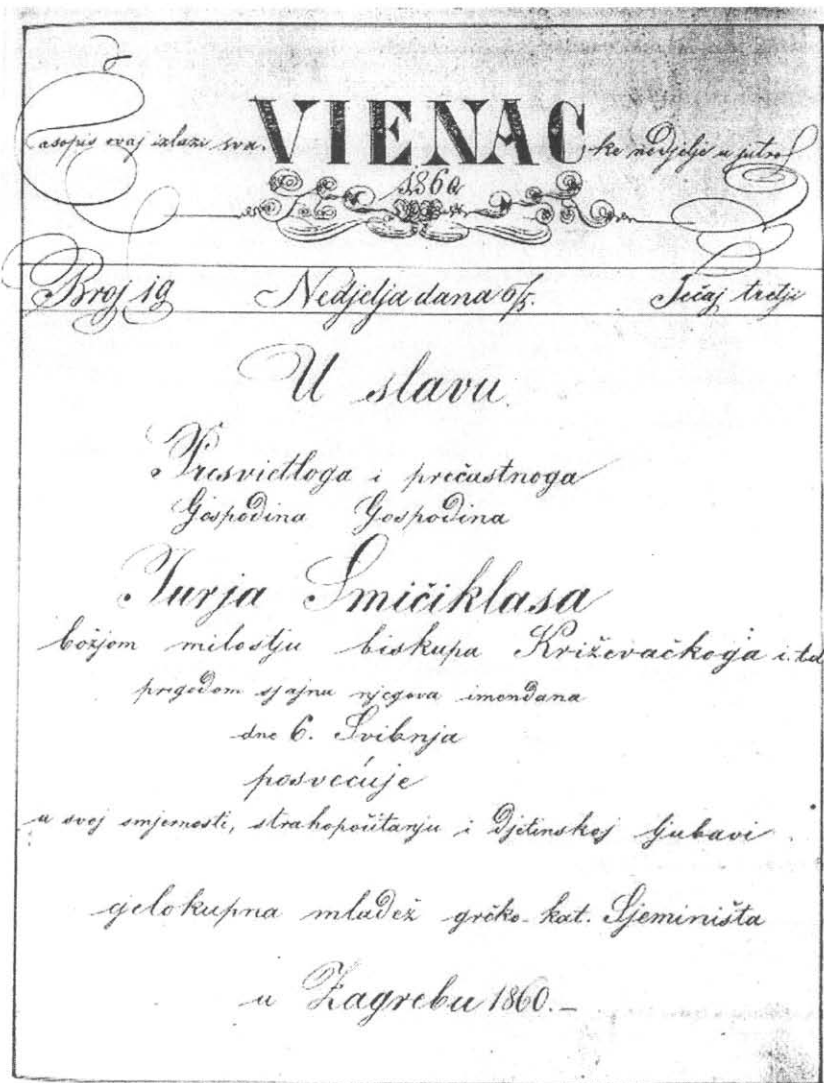 Časopis ovaj izlazi sva-
VIENAC
ke nedjelje u jutro
1860
Broj 19 Nedjelja dana 6/5. Tečaj tretji
U slavu
Presvietloga i prečastnoga
Gospodina Gospodina
Jurja Smičiklasa
božjom milostju biskupa Križevačkoga i. t. d
prigodom sjajna njegova imendana
dne 6. Svibnja
posvećuje
u svoj smjernosti, strahopočitanju i djetinskoj ljubavi
cjelokupna mladež grčko-kat. Sjeminišta
u Zagrebu 1860.–